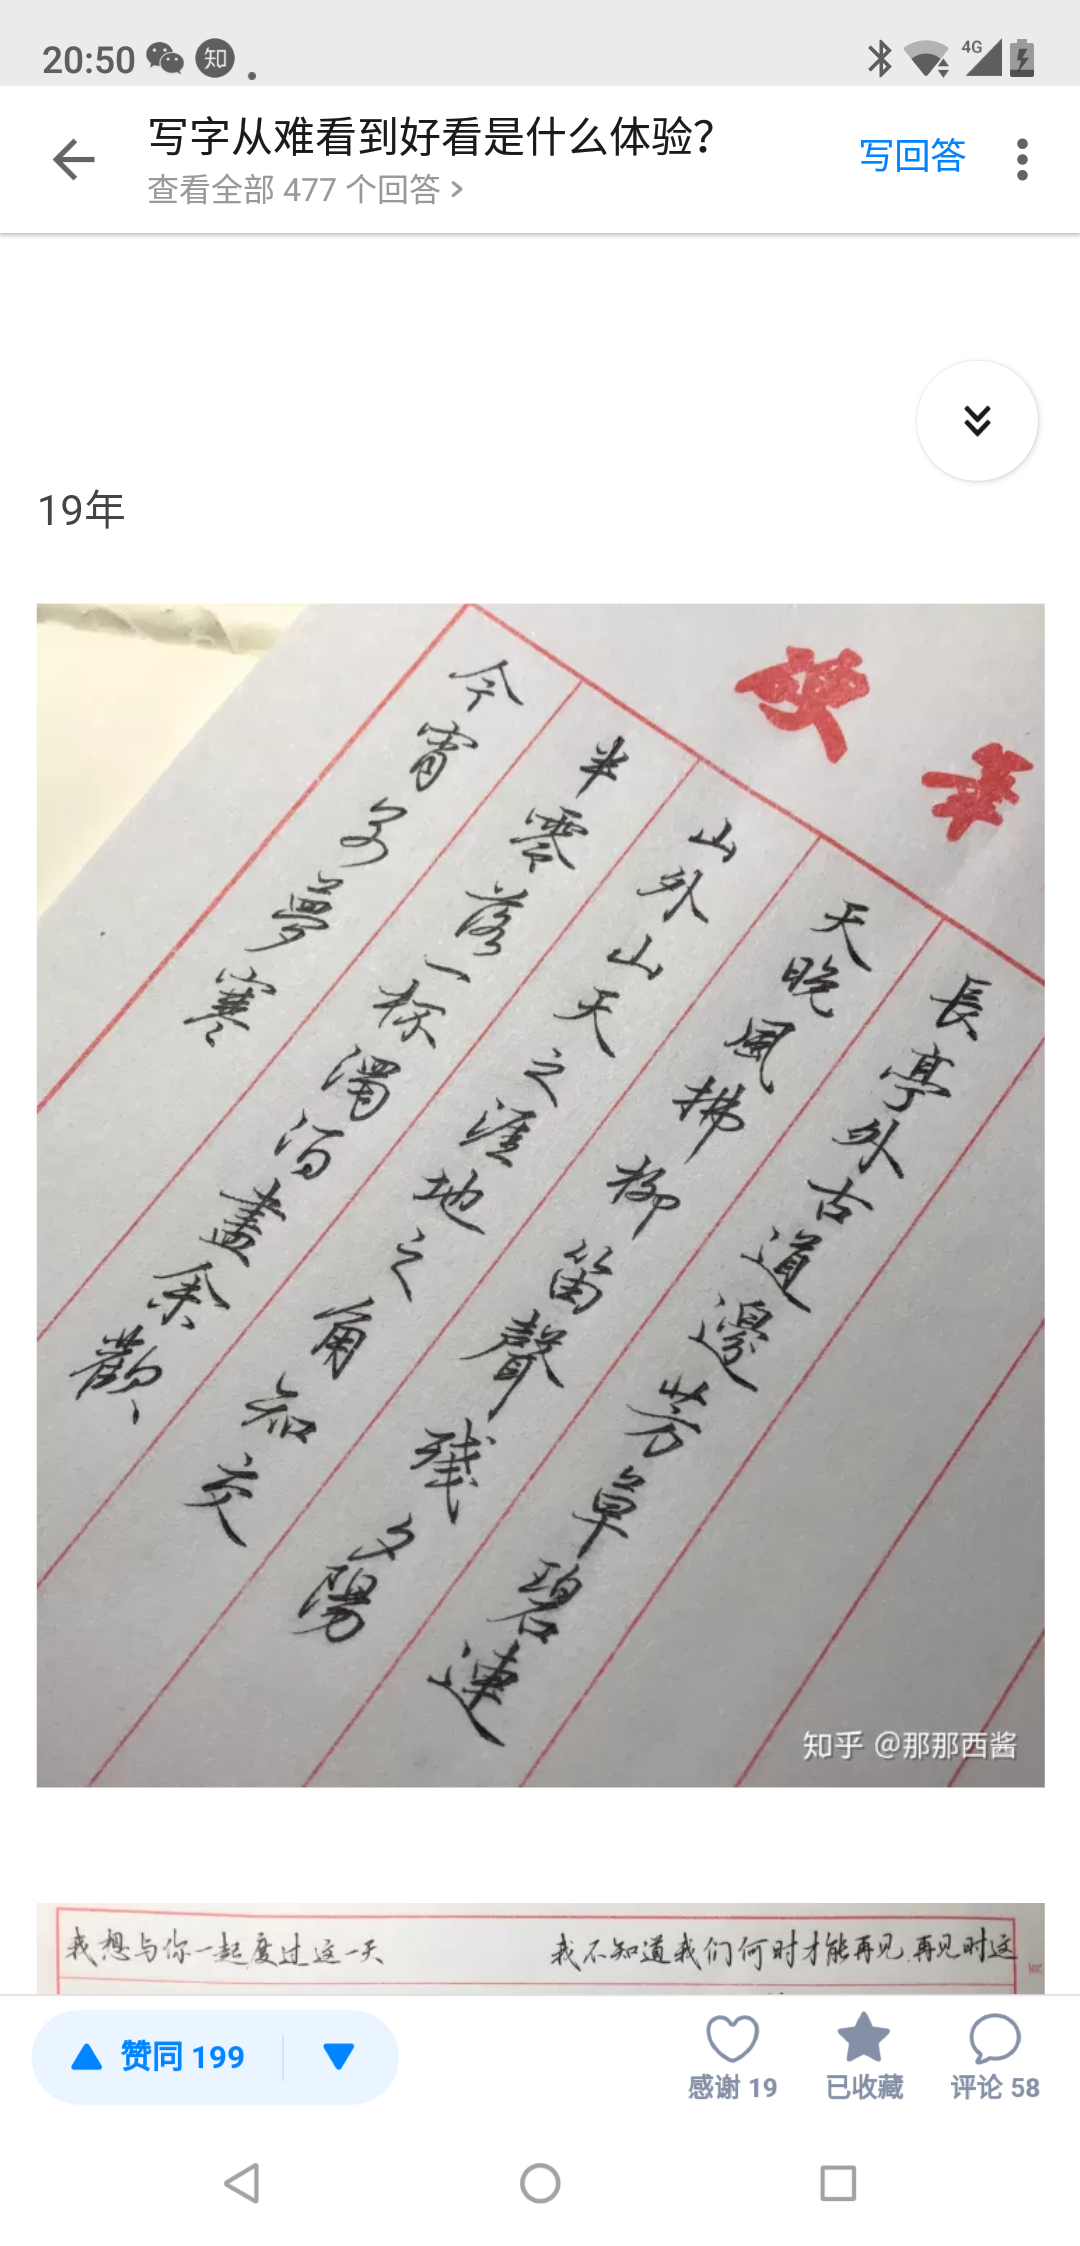 20:50 知 4G
写字从难看到好看是什么体验?
查看全部 477 个回答 >
写回答
19年
長亭外古道邊芳草碧連
天晚風拂柳笛聲残夕陽
山外山天之涯地之角知交
半零落一瓢濁酒盡余歡
今宵别夢寒
知乎 @那那西酱
我想与你一起度过这一天
我不知道我们何时才能再见.再见时这
赞同 199
感谢 19
已收藏
评论 58